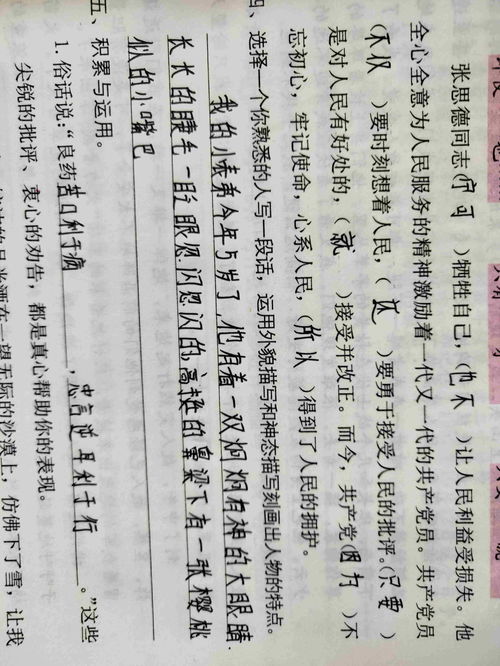 张思德同志(宁可)牺牲自己,(也不)让人民利益受损失。他
全心全意为人民服务的精神激励着一代又一代的共产党员。共产党员
(不仅)要时刻想着人民,(还)要勇于接受人民的批评。(只要)
是对人民有好处的,(就)接受并改正。而今,共产党(因为)不
忘初心,牢记使命,心系人民,(所以)得到了人民的拥护。
四、选择一个你熟悉的人写一段话,运用外貌描写和神态描写刻画出人物的特点。
我的小表弟今年5岁了,他有着一双炯炯有神的大眼睛.
长长的睫毛一眨眼忽闪忽闪的,高挺的鼻梁下有一张樱桃
似的小嘴巴
五、积累与运用。
1. 俗话说:“良药苦口利于病,忠言逆耳利于行。”这些
尖锐的批评、衷心的劝告,都是真心帮助你的表现。
洒在一望无际的沙漠上,仿佛下了雪,让我